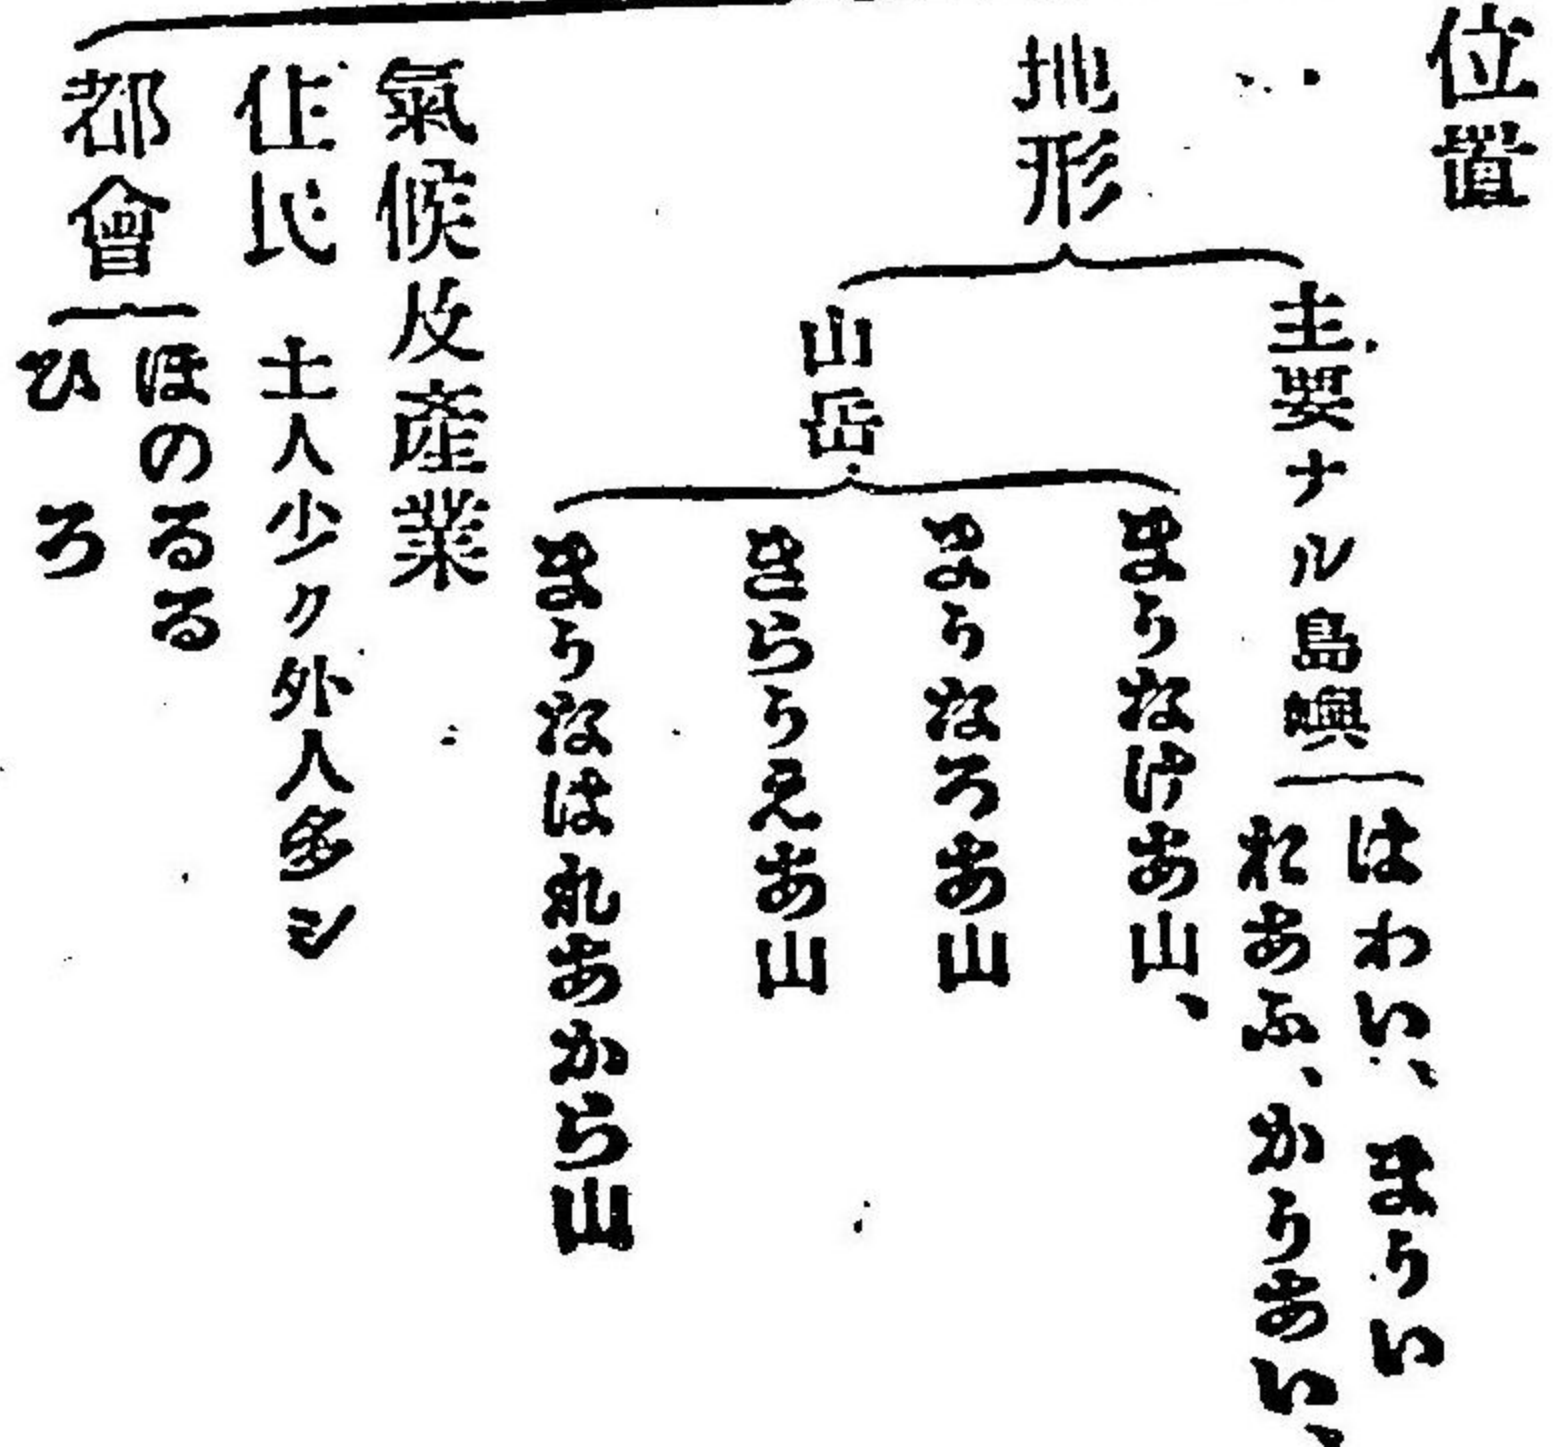 位置
地形
主要ナル島嶼
はわい、まうい
おあふ、かうあい、
山岳
まうなけあ山、
まうなろあ山
きらうえあ山
まうなはれあから山
氣候及產業
住民 土人少ク外人多シ
都會
ほのるる
ひろ